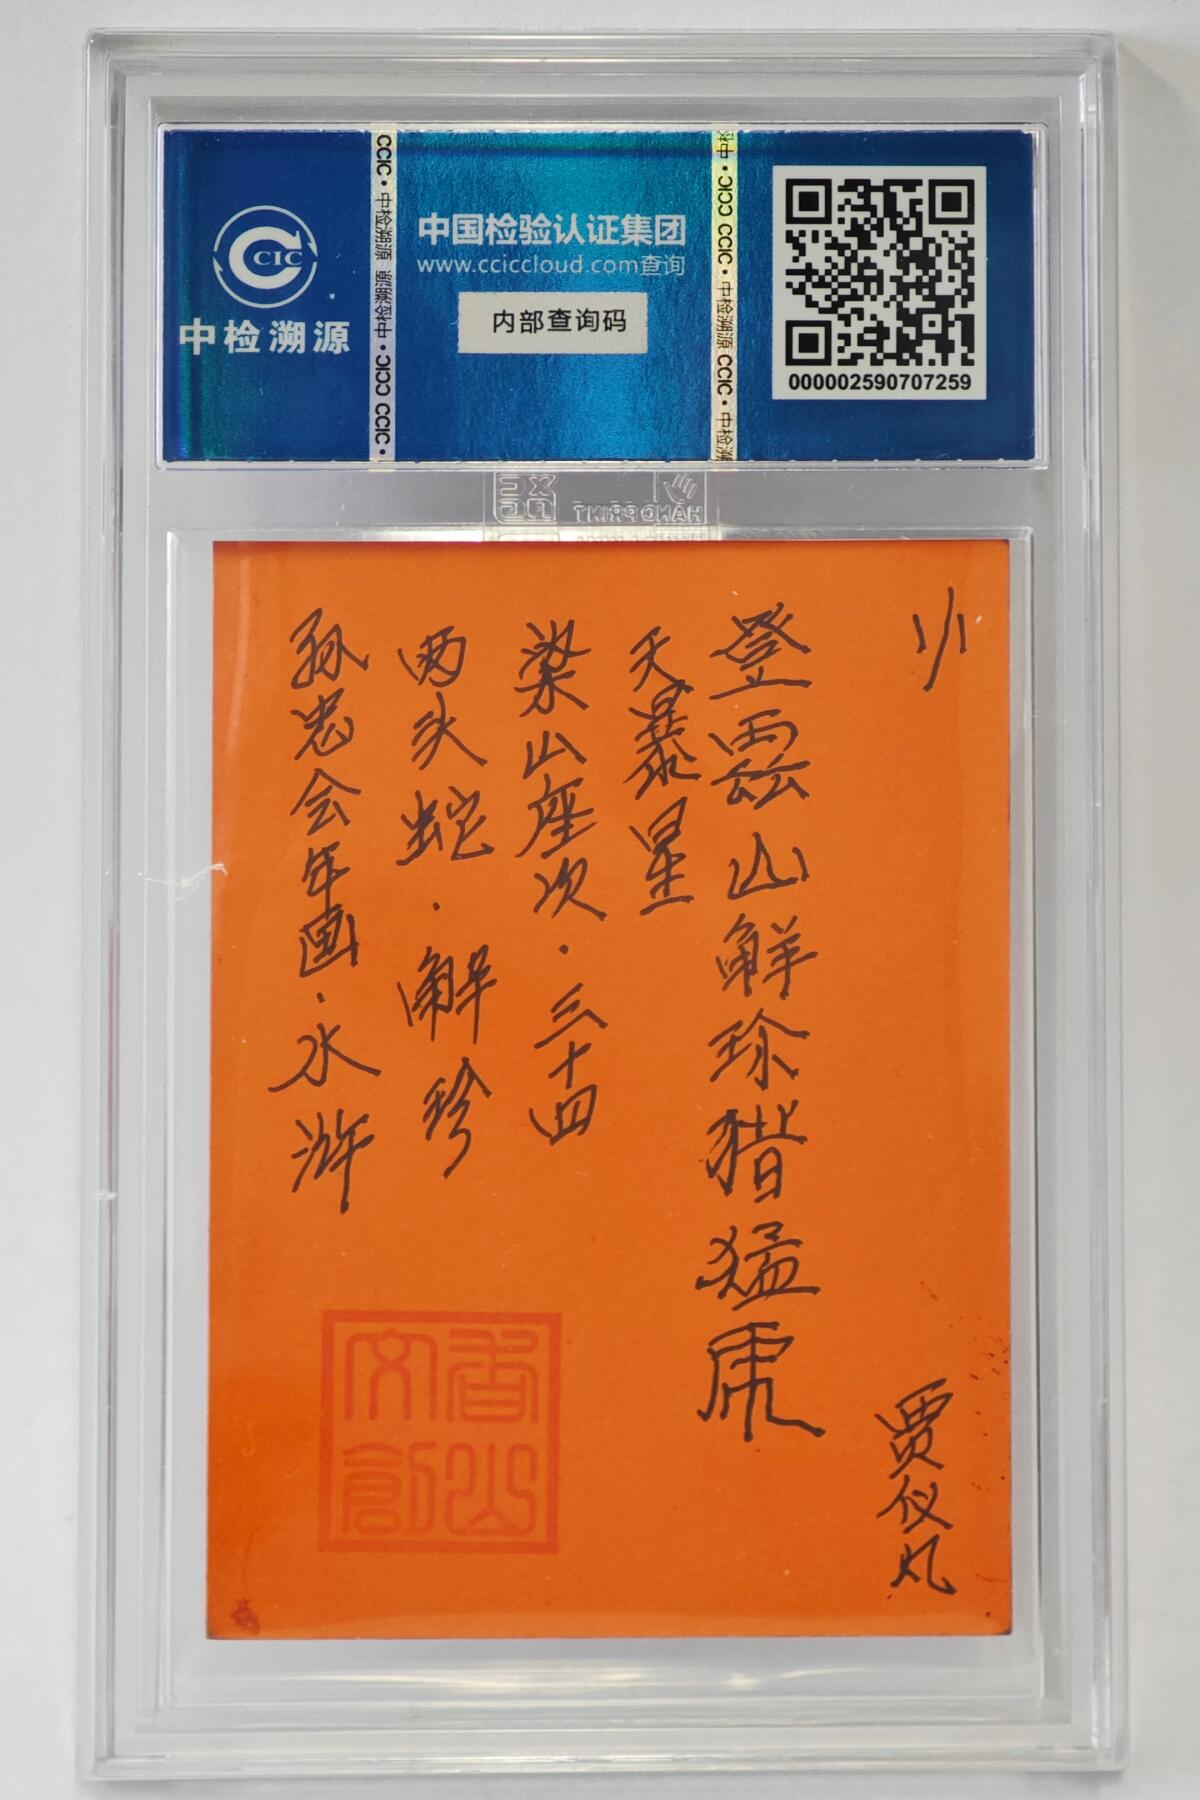 CCIC
中检溯源
CCIC · 中检溯源 CCIC · CCIC CCIC ·
中国检验认证集团
www.cciccloud.com查询
内部查询码
中检 · CCIC CCIC · 中检溯源 CCIC · 中检溯
000002590707259
HAND PRINT
1/1
登雲山解珍猎猛虎
天暴星
梁山座次·三十四
两头蛇·解珍
孙忠会年画·水浒
香山文創